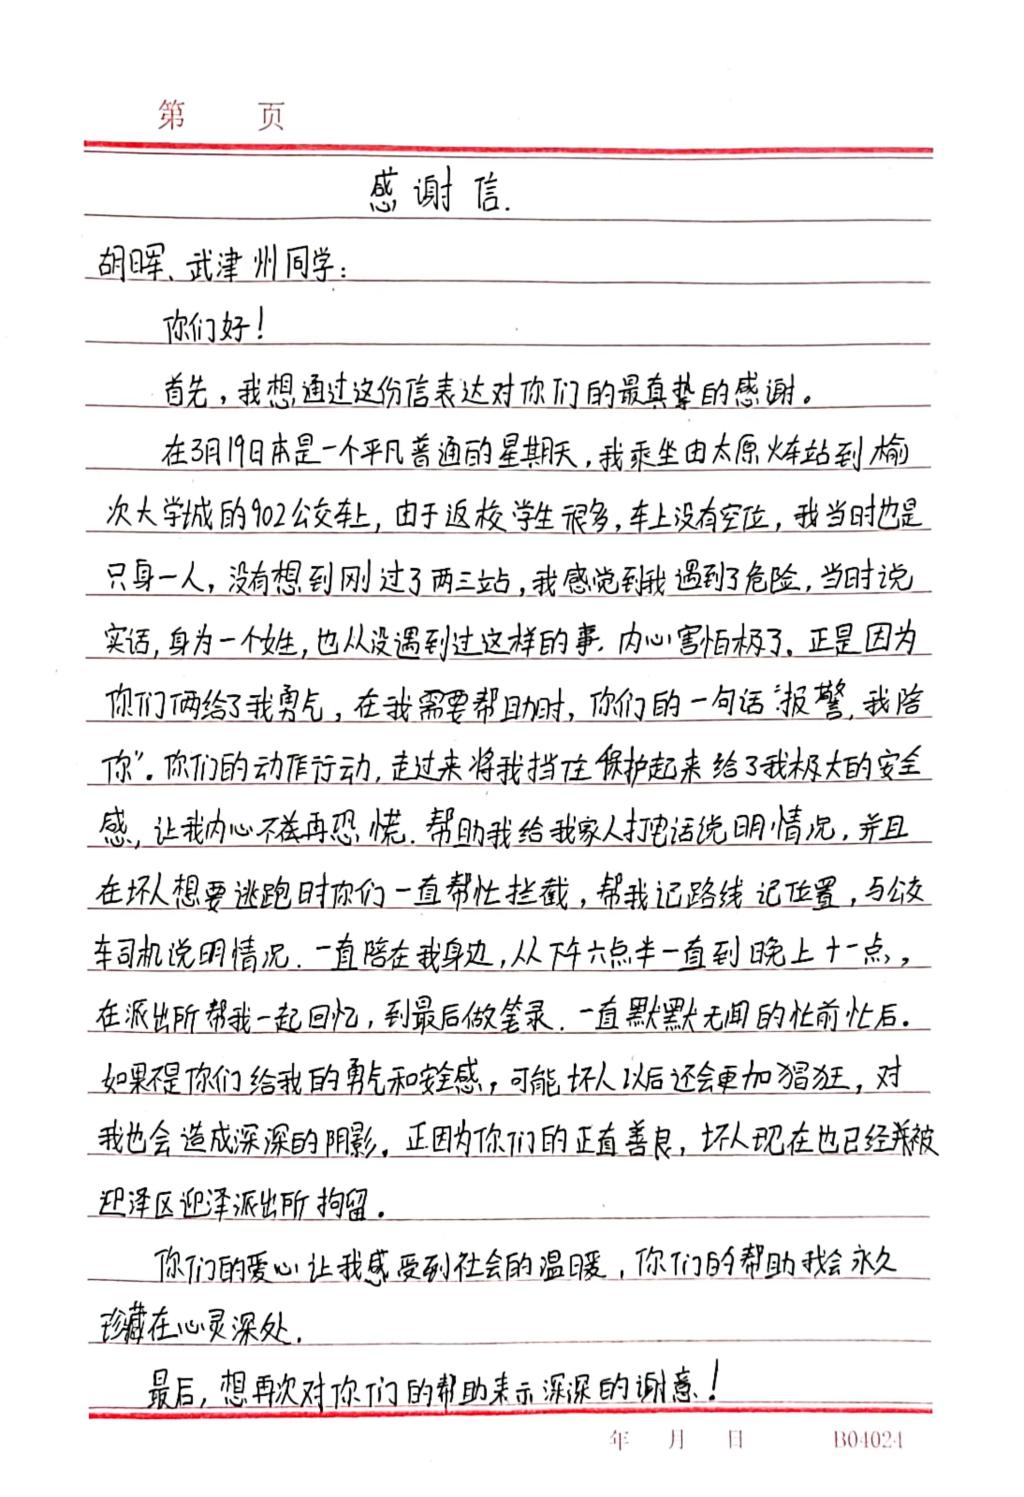 第 页
感谢信.
胡晖、武津州同学:
你们好!
首先,我想通过这份信表达对你们的最真挚的感谢。
在3月19日本是一个平凡普通的星期天,我乘坐由太原火车站到榆
次大学城的902公交车上,由于返校学生很多,车上没有空位,我当时也是
只身一人,没有想到刚过了两三站,我感觉到我遇到了危险,当时说
实话,身为一个女生,也从没遇到过这样的事.内心害怕极了。正是因为
你们俩给了我勇气,在我需要帮助时,你们的一句话:“报警,我陪
你”。你们的动作行动,走过来将我挡住保护起来给了我极大的安全
感,让我内心不在再恐慌.帮助我给我家人打电话说明情况,并且
在坏人想要逃跑时你们一直帮忙拦截,帮我记路线记位置,与公交
车司机说明情况.一直陪在我身边,从下午六点半一直到晚上十一点,
在派出所帮我一起回忆,到最后做笔录.一直默默无闻的忙前忙后。
如果不是你们给我的勇气和安全感,可能坏人以后还会更加猖狂,对
我也会造成深深的阴影。正因为你们的正直善良,坏人现在也已经被
迎泽区迎泽派出所拘留。
你们的爱心让我感受到社会的温暖,你们的帮助我会永久
珍藏在心灵深处.
最后,想再次对你们的帮助表示深深的谢意!
年 月 日 B04024